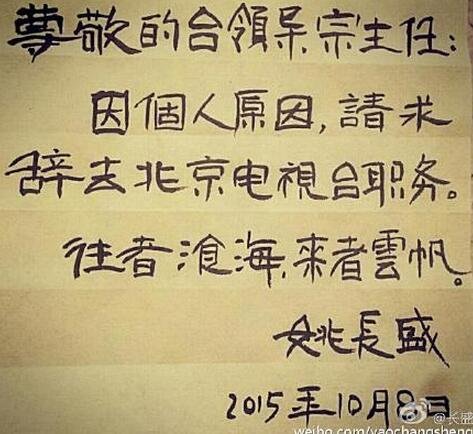 尊敬的台領呆宗主任:
因個人原因,請求
辞去北京电視台职务。
往者滄海,來者雲帆。
姚長盛
2015年10月8日
@长盛
weibo.com/yaochangsheng